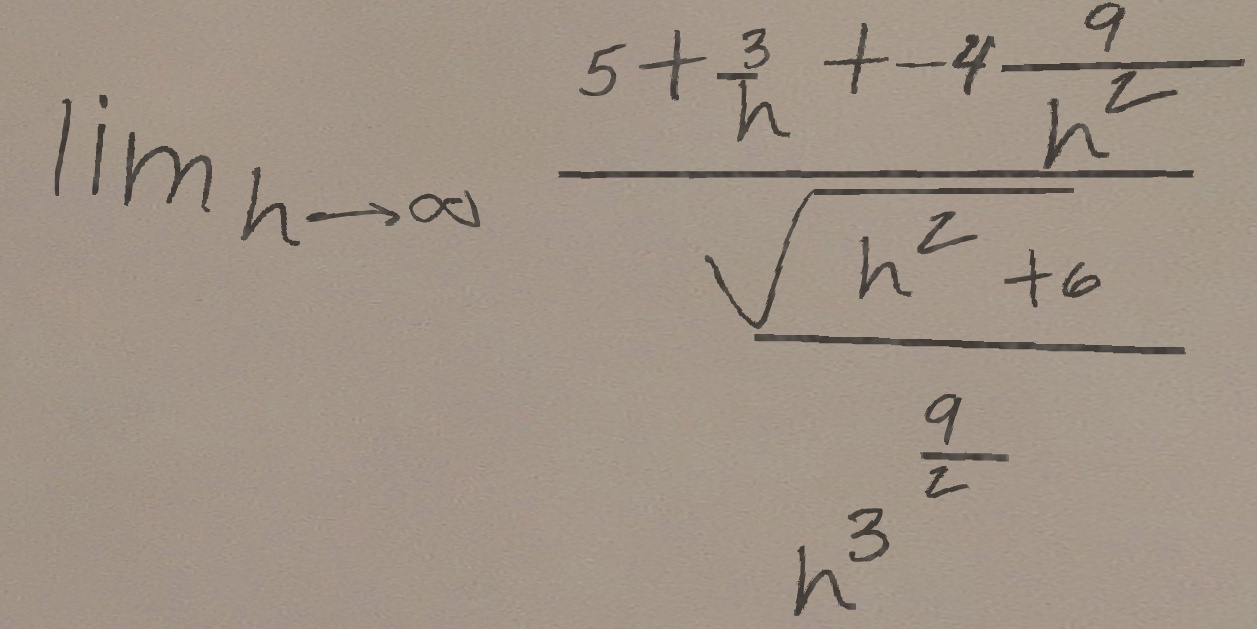 lim h→∞ (5 + 3/h + -4 9/h^2) / (√(h^2 + 6) / h^3^(9/2))